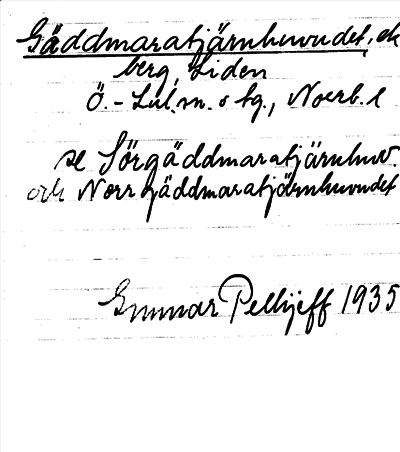 Gäddmaratjärnhuvudet, ek
berg, Liden
Ö.-Lul. sn. o tg., Norrb. l
se Sörgäddmaratjärnhuv.
och Norrgäddmaratjärnhuvudet
Gunnar Pellijeff 1935